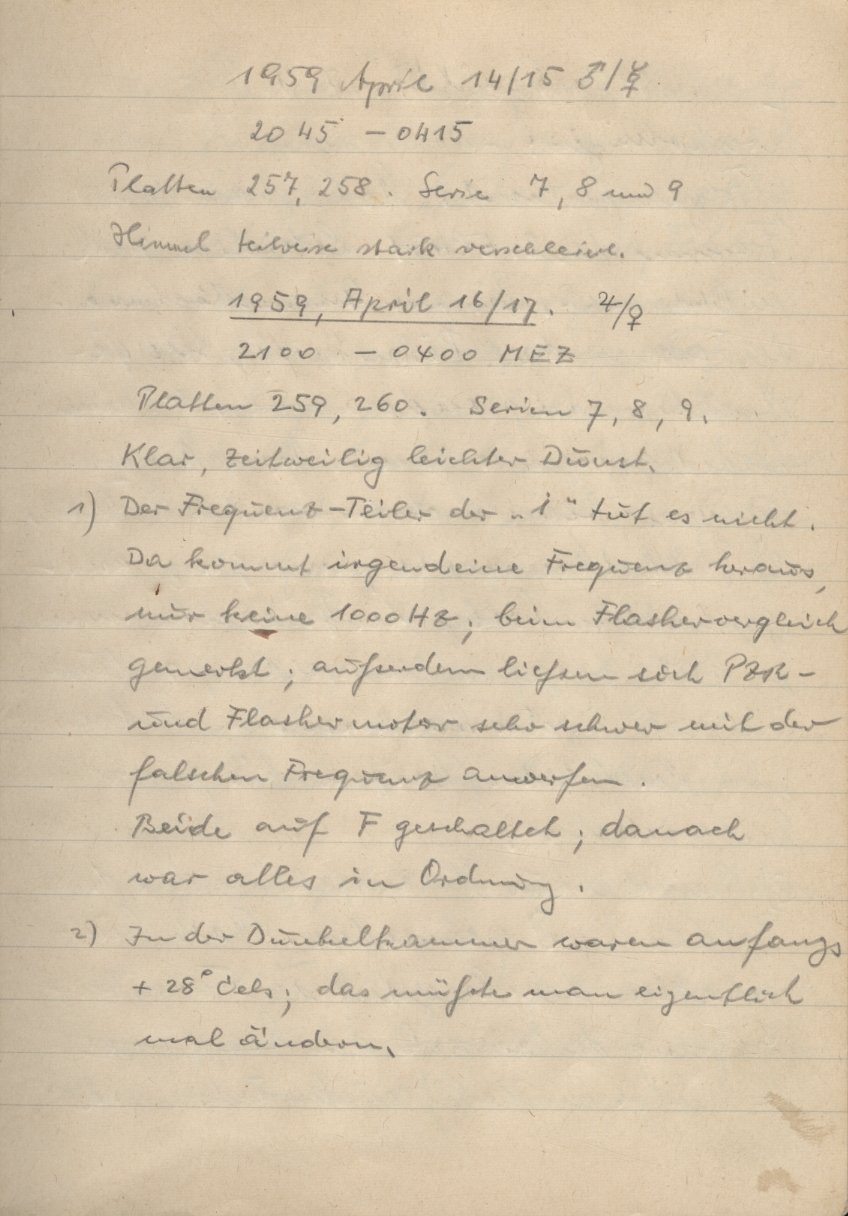 1959 April 14/15 ♂/☿
2045 – 0415
Platten 257, 258. Serie 7, 8 und 9
Himmel teilweise stark verschleiert.
1959, April 16/17. ♃/♀
2100 – 0400 MEZ
Platten 259, 260. Serien 7, 8, 9.
Klar, zeitweilig leichter Dunst.
1) Der Frequenz-Teiler der „1“ tut es nicht.
Da kommt irgendeine Frequenz heraus,
nur keine 1000 Hz; beim Flashervergleich
gemerkt; außerdem ließen sich PZR-
und Flashermotor sehr schwer mit der
falschen Frequenz anwerfen.
Beide auf F geschaltet; danach
war alles in Ordnung.
2) In der Dunkelkammer waren anfangs
+ 28° Cels; das müßte man eigentlich
mal ändern.